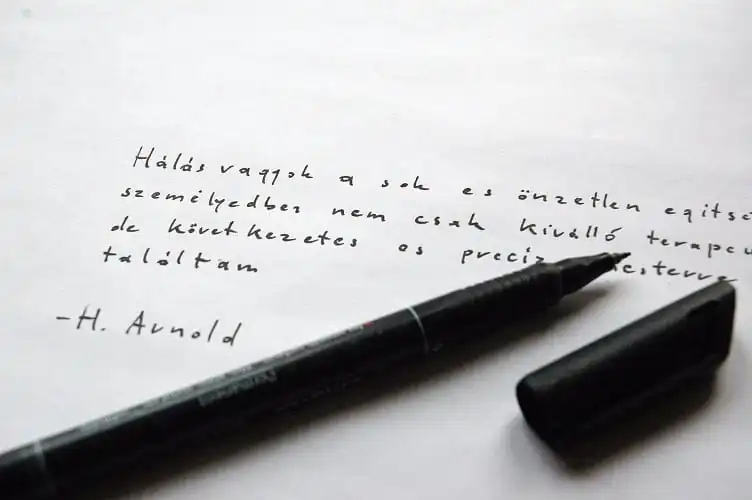 Hálás vagyok a sok es önzetlen egitse
személyedben nem csak kiválló terapeu
de következetes es preciz esterre
találtam
-H. Arnold